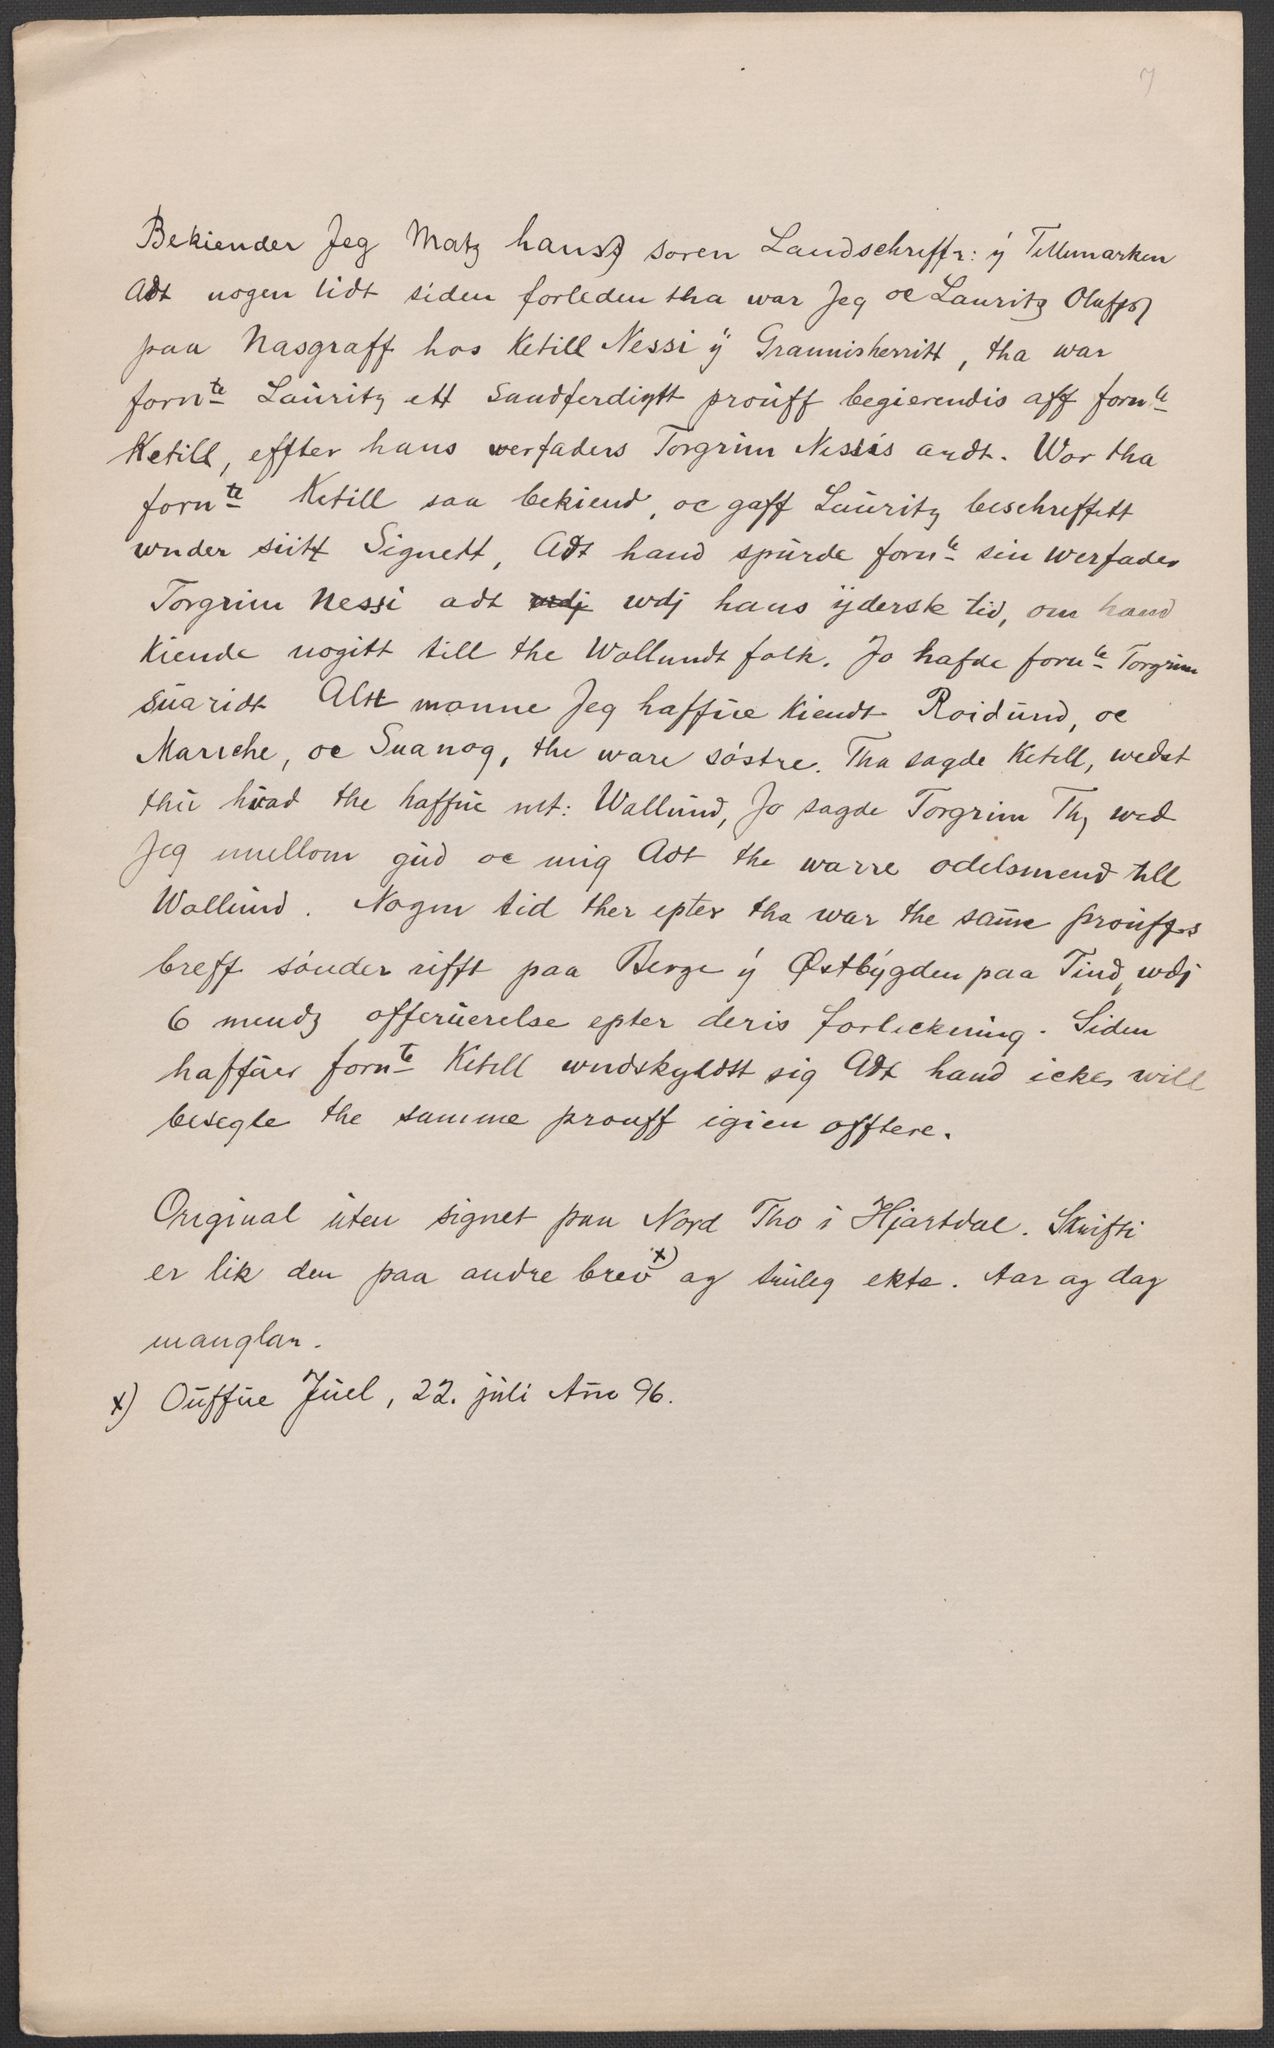 7
Bekiender Jeg Matz hansz soren Landschreffr: ÿ Tellemarken
Adt nogen tidt siden forleden tha war Jeg oc Lauritz Oluffsz
paa Nasgraff hos Ketill Nessi ÿ Grannisherritt, tha war
fornte Lauritz ett sandferdigtt prouff begierendis aff fornte
Ketill, effter hans werfaders Torgrim Nessis ordt. Wor tha
fornte Ketill saa bekiend, oc gaff Lauritz beschreffett
wnder siitt Signett, Adt hand spurde fornte sin werfader
Torgrim Nessi adt wdj wdj hans ÿderste tid, om hand
kiende nogitt till the Wollundt folk. Jo hafde fornte Torgrim
suaridt Altt monne Jeg haffue kiendt Roidund, oc
Mariche, oc Suanog, the ware söstre. Tha sagde Ketell, wedst
thu huad the haffue mt: Wallund, Jo sagde Torgrim Thz wed
Jeg mellom gud oc mig Adt the warre odelsmend till
Wollund. Nogen tid ther epter tha war the samme prouffs
breff sönder rifft paa Berge ÿ Østbÿgden paa Tind, wdj
6 mendz offeruerelse epter deris forlickning. Siden
haffuer fornte Ketell wndskyldtt sig Adt hand icke will
besegle the samme prouff igien offtere.
Original uten signet paa Nord Tho i Hjartdal. Skrifti
er lik den paa andre brev x) og truleg ekte. Aar og dag
manglar.
x) Ouffue Juel, 22. juli Ano 96.